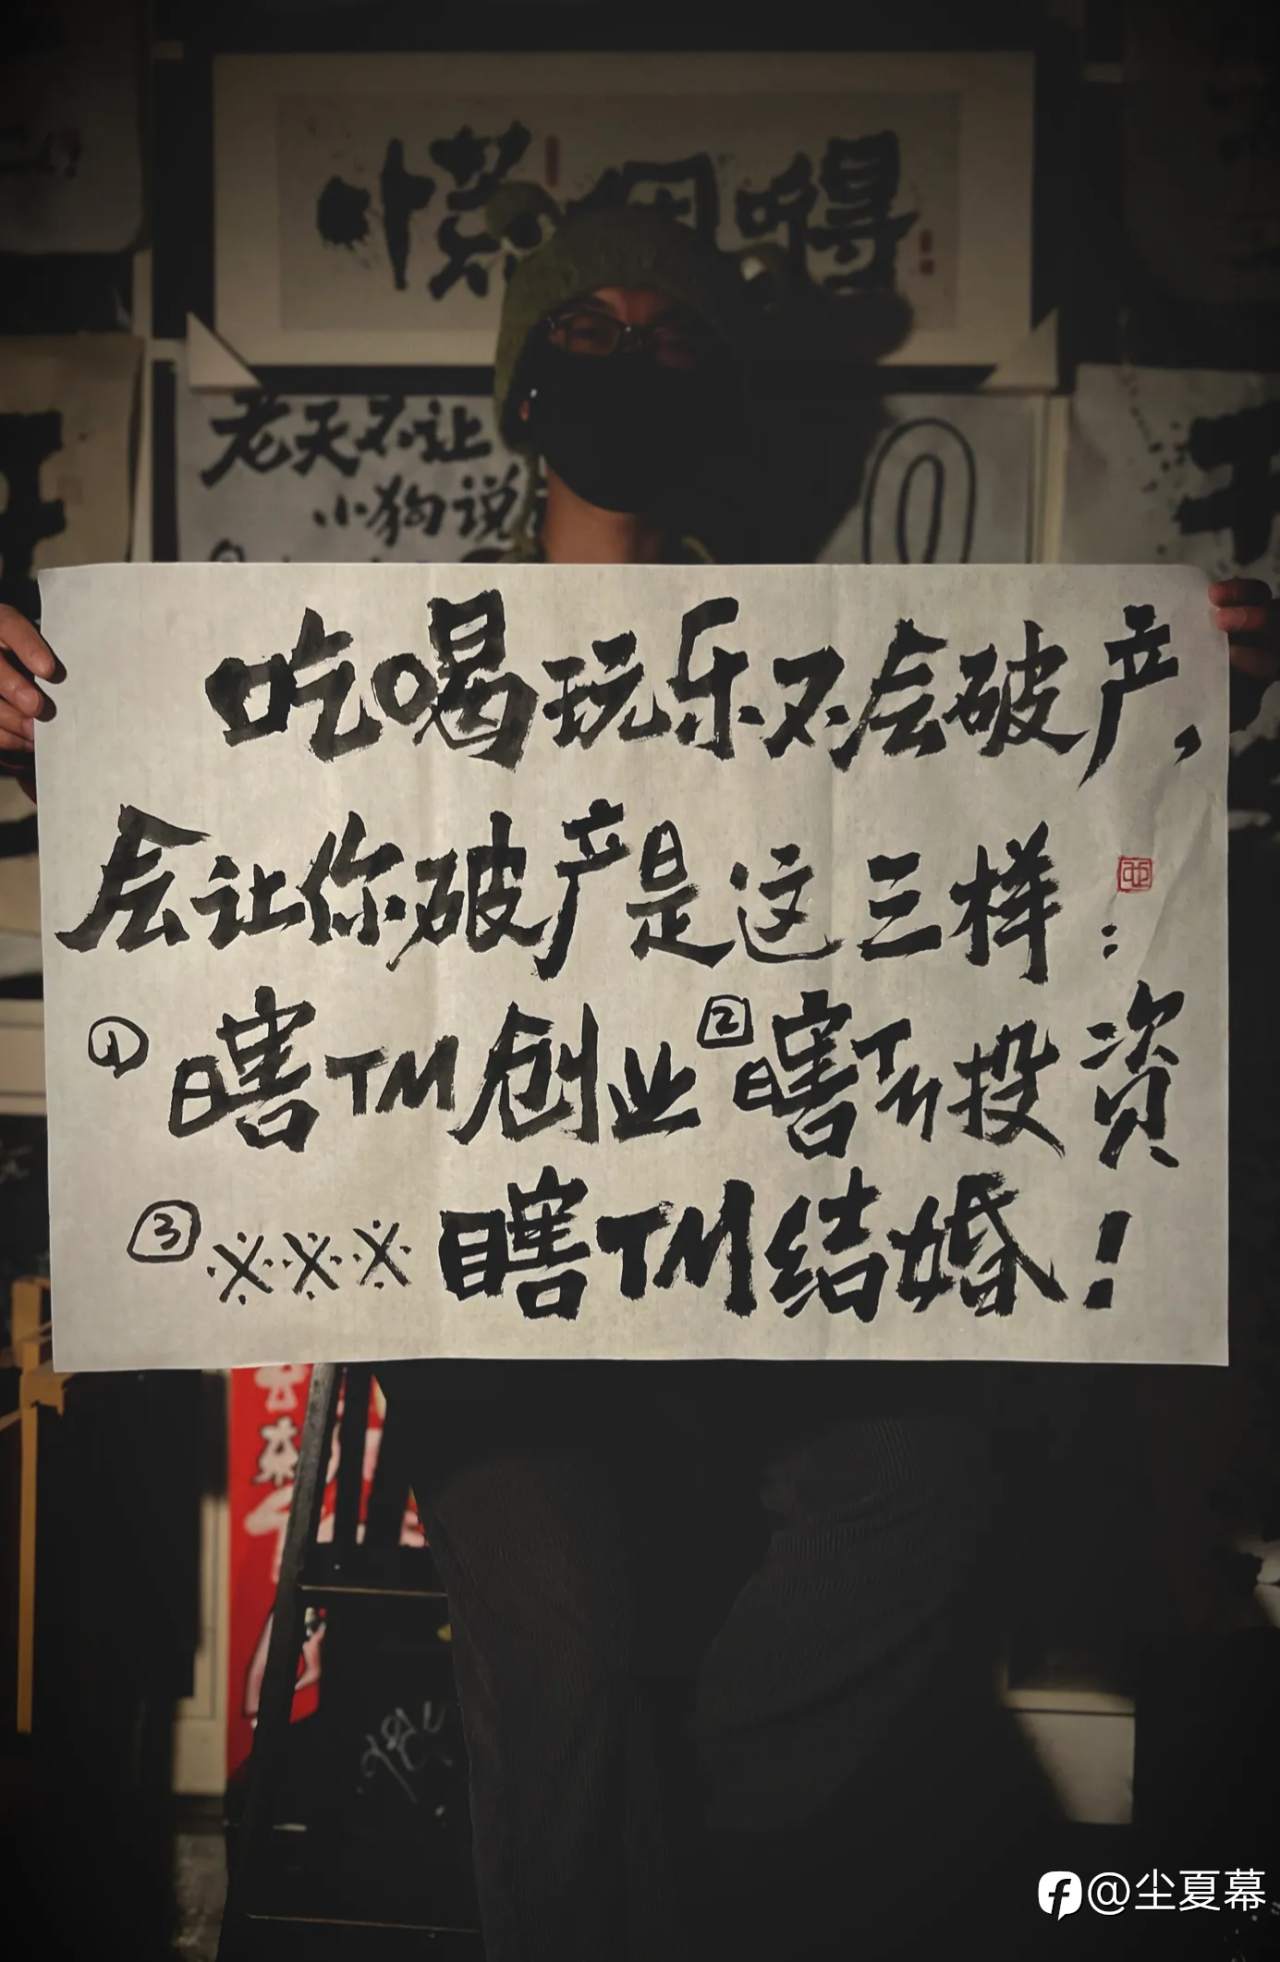 懒得
老天不让
小狗说
吃喝玩乐不会破产，
会让你破产是这三样：
① 瞎TM创业 ② 瞎TM投资
③ ※※※ 瞎TM结婚！
去
来
@尘夏幕